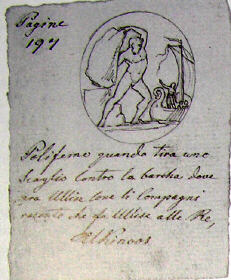 Pagine
197
Polifemo quando tira uno
scoglio contro la barcha dove
era Ulisse con li Compagni
raconto che fa Ulisse alle Re,
Alkinoos